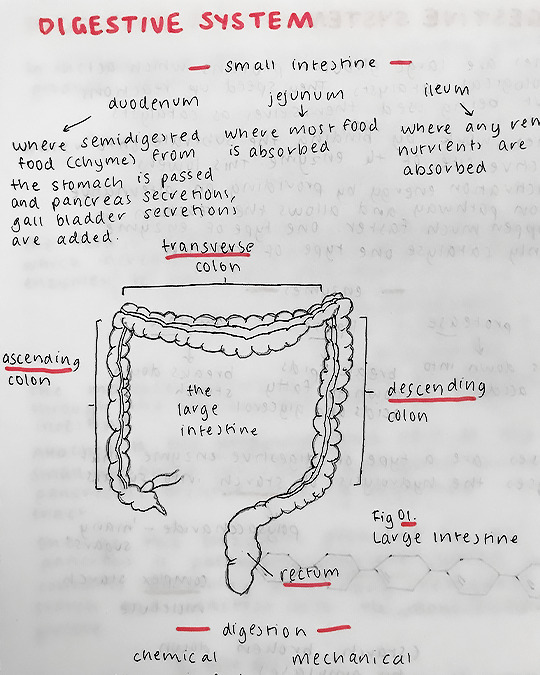 DIGESTIVE SYSTEM
— small intestine —
duodenum
jejunum
ileum
where semidigested
food (chyme) from
the stomach is passed
and pancreas secretions,
gall bladder secretions
are added.
where most food
is absorbed
where any
nutrients are
absorbed
transverse
colon
ascending
colon
the
large
intestine
descending
colon
Fig 01.
Large Intestine
rectum
— digestion —
chemical
mechanical